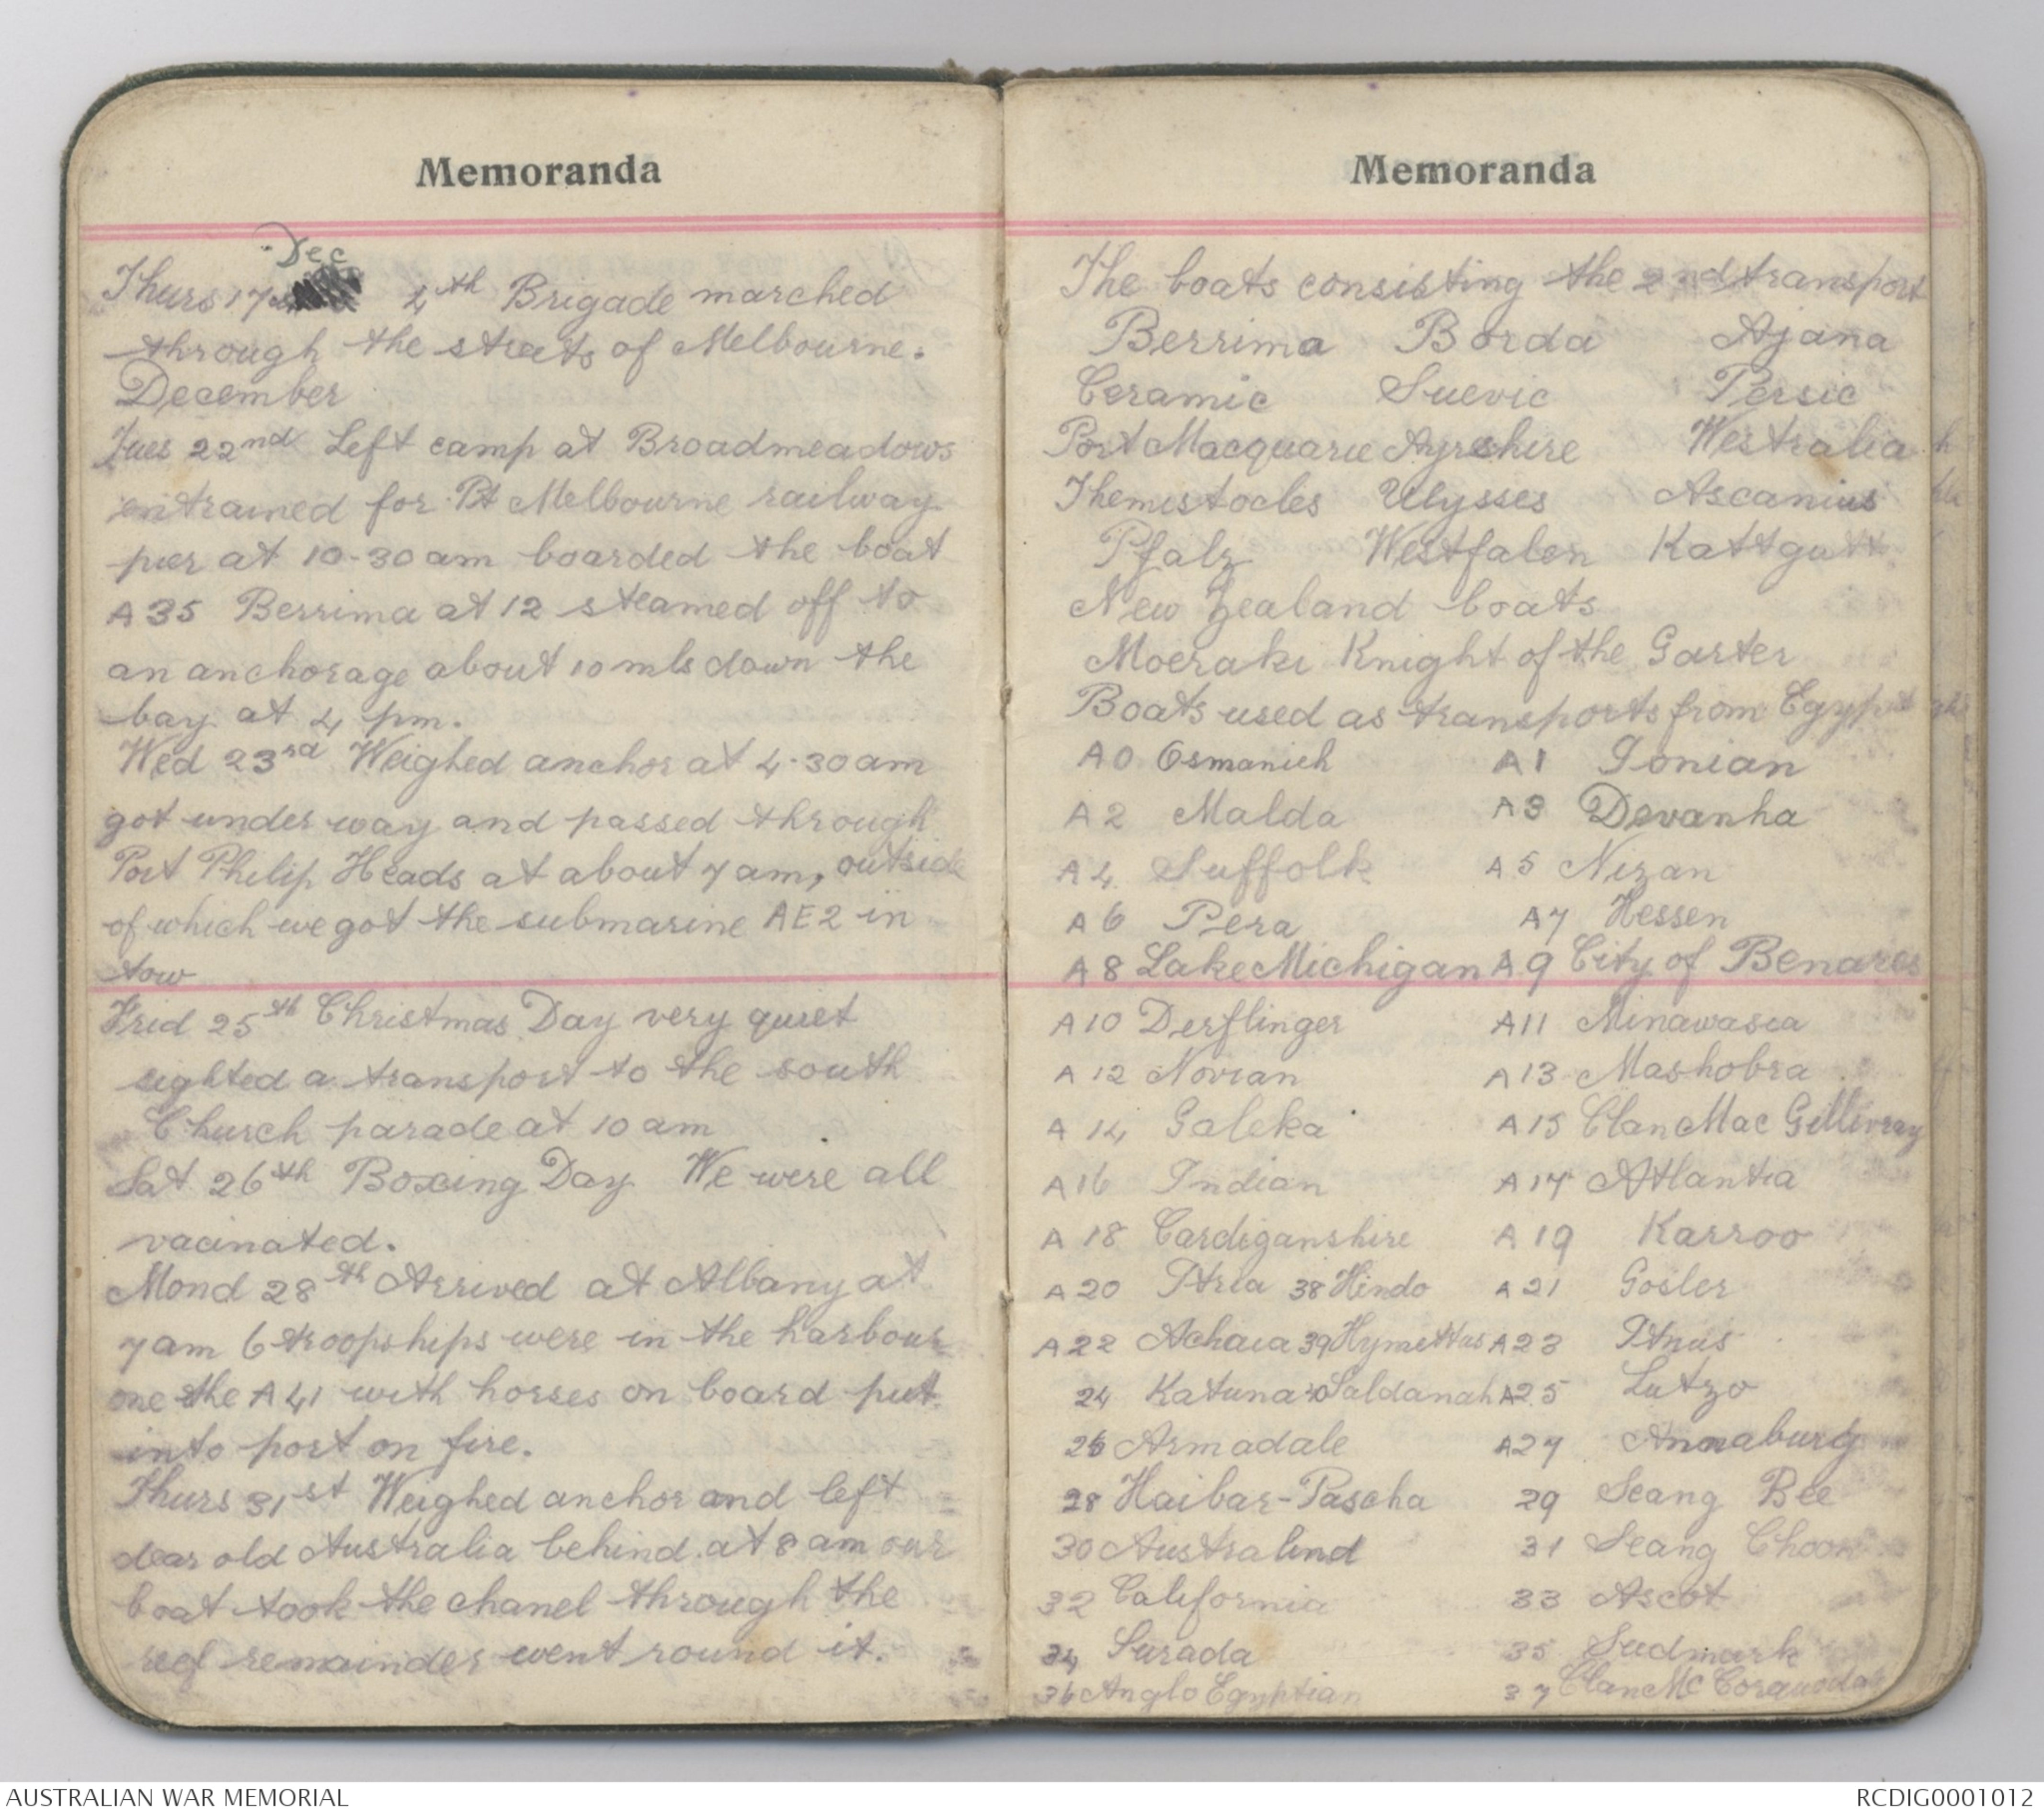 Memoranda
Dec
Thurs 17 4th Brigade marched
through the streets of Melbourne.
December
Tues 22nd Left camp at Broadmeadows
entrained for Pt Melbourne railway
pier at 10-30 am boarded the boat
A35 Berrima at 12 steamed off to
an anchorage about 10 mls down the
bay at 4 pm.
Wed 23rd Weighed anchor at 4-30 am
got under way and passed through
Port Philip Heads at about 7 am, outside
of which we got the submarine AE2 in
tow
Frid 25th Christmas Day very quiet
sighted a transport to the south
Church parade at 10 am
Sat 26th Boxing Day We were all
vacinated.
Mond 28th Arrived at Albany at
7 am 6 troopships were in the harbour
one the A41 with horses on board put
into port on fire.
Thurs 31st Weighed anchor and left
dear old Australia behind at 8 am our
boat took the chanel through the
reef remainder went round it.
Memoranda
The boats consisting the 2nd transport
Berrima Borda Ajana
Ceramic Suevic Persic
Port Macquarie Ayrshire Westralia
Themistocles Ulysses Ascanius
Pfalz Westfalen Kattgatt
New Zealand boats
Moeraki Knight of the Garter
Boats used as transports from Egypt
A0 Osmanieh A1 Ionian
A2 Malda A3 Devanha
A4 Suffolk A5 Nizan
A6 Pera A7 Hessen
A8 Lake Michigan A9 City of Benares
A10 Derflinger A11 Minawasca
A12 Novian A13 Mashobra
A14 Galeka A15 Clan Mac Gillivray
A16 Indian A17 Atlantia
A18 Cardiganshire A19 Karroo
A20 Itria 38 Hindo A21 Gosler
A22 Achaia 39 Hymettus A23 Itnus
24 Katuna 40 Saldanah A25 Lutzo
26 Armadale A27 Annaburg
28 Haibar-Pascha 29 Seang Bee
30 Australind 31 Seang Choon
32 California 33 Ascot
34 Surada 35 Sudmark
36 Anglo Egyptian 37 Clan Mc Corquodale
AUSTRALIAN WAR MEMORIAL
RCDIG0001012